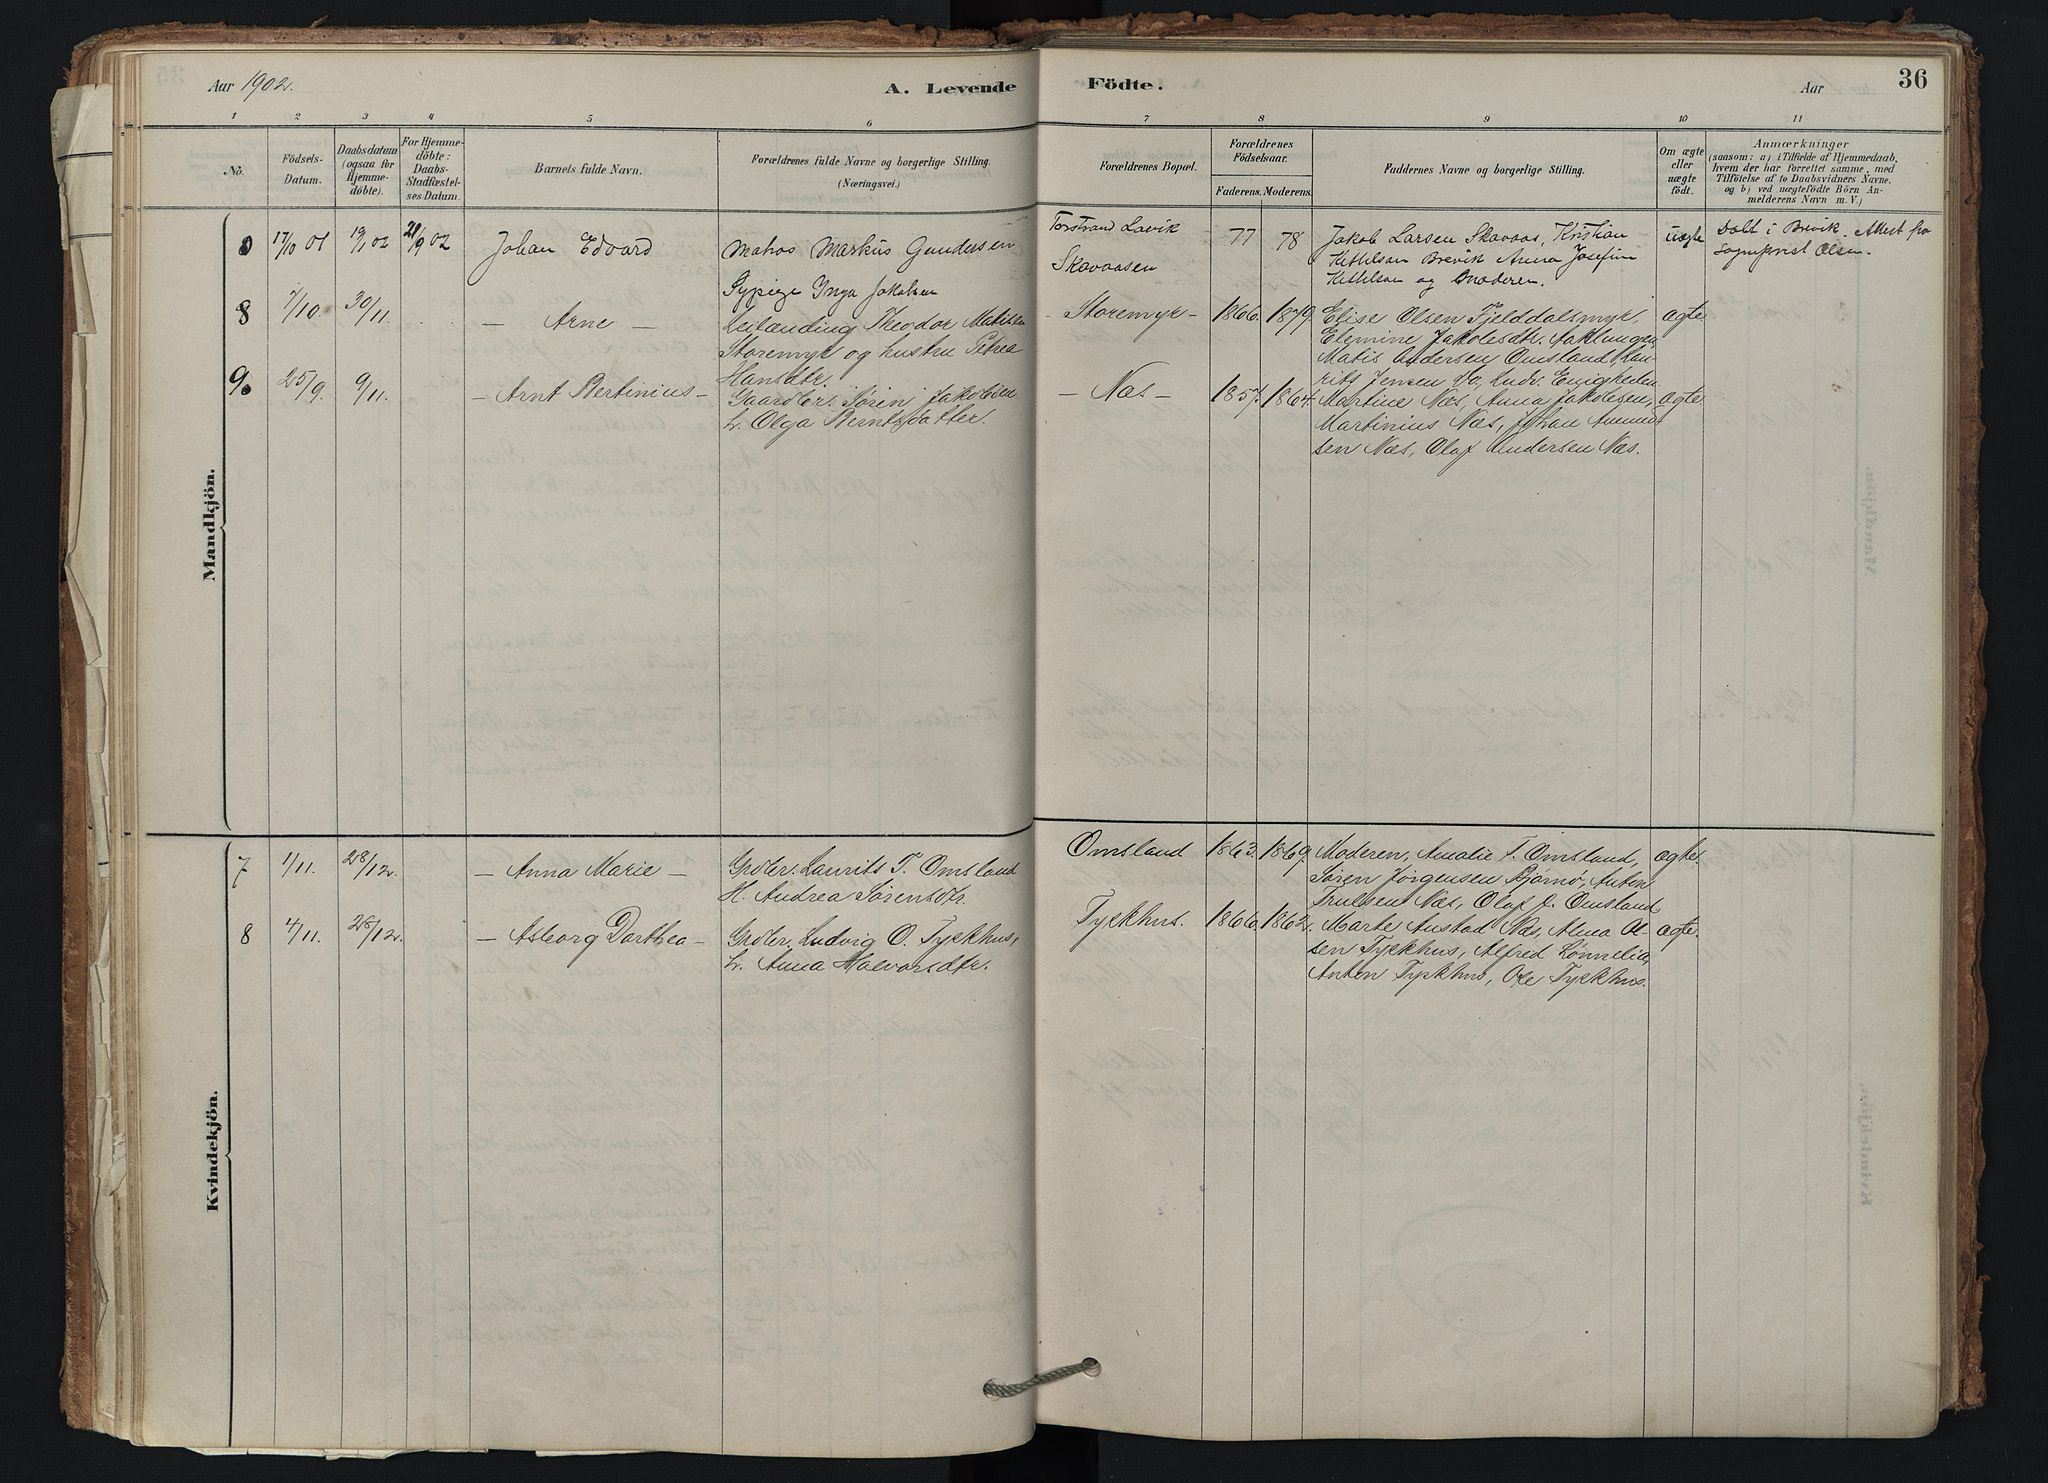 Aar 1902.
A. Levende
Födte.
Aar
36
1
2
3
4
5
6
7
8
9
10
11
No.
Födsels-
Datum.
Daabsdatum
(ogsaa for
Hjemme-
döbte).
For Hjemme-
döbte:
Daabs-
Stadfæstel-
ses Datum.
Barnets fulde Navn.
Forældrenes fulde Navne og borgerlige Stilling.
(Næringsvei.)
Forældrenes Bopæl.
Forældrenes
Födselsaar.
Faderens. Moderens.
Faddernes Navne og borgerlige Stilling.
Om ægte
eller
uægte
födt.
Anmærkninger
(saasom: a) i Tilfælde af Hjemmedaab,
hvem der har forrettet samme, med
Tilföielse af to Daabsvidners Navne,
og b) ved uægtefödte Börn An-
melderens Navn m. V.)
Mandkjön.
17/10 01
19/1 02
21/9 02
Johan Edvard
Matros Markus Gundersen
Sypige Inga Jakobsen
Torstrand Laavik
Skavaasen
77
78
Jakob Larsen Skavaas, Kristian
Kittilsen Brevik Anna Josefine
Kittilsen og Moderen.
uægte
Døbt i Brevik. Attest fra
Sognepræst Olsen.
8
7/10.
30/11.
— Arne —
Leilænding Theodor Mathisen
Storemyr og hustru Petrea
Hansdtr.
- Storemyr -
1866.
1879.
Elise Olsen Fjelddalsmyr,
Elemine Jakobsdtr. Aaklungen,
Matis Andersen Omsland, Lau-
rits Jensen do, Ludv. Enigheden
ægte.
9.
25/9.
9/11.
— Arnt Bertinius —
Gaardbr. Søren Jakobsen
h. Olga Berntsdatter.
— Næs —
1857.
1864.
Martine Næs, Anna Jakobsen,
Martinius Næs, Johan Amund-
sen Næs, Olaf Andersen Næs.
ægte.
Kvindekjön.
7
1/11.
28/12.
— Anna Marie —
Grdbr. Laurits T. Omsland
H. Andrea Sørensdtr.
Omsland
1863.
1869.
Moderen, Amalie T. Omsland,
Søren Jørgensen Bjørnø, Anton
Trulsen Næs, Olaf J. Omsland
ægte.
8
4/11.
28/12.
— Asborg Dorthea —
Grdbr. Ludvig O. Tykkhus,
h. Anna Halvorsdtr.
Tykkhus.
1866.
1862.
Marte Austad Næs, Alma Ol-
sen Tykkhus, Alfred Lønnelia,
Anton Tykkhus, Ole Tykkhus.
ægte.